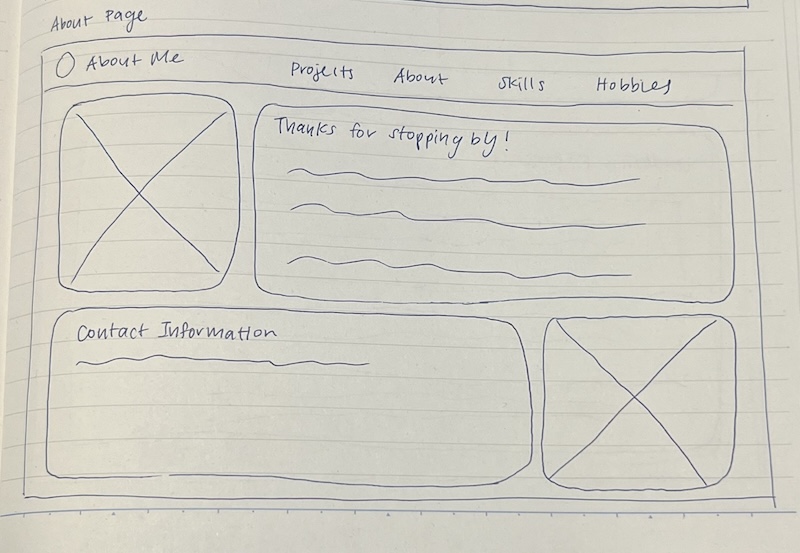 About Page
About Me
Projects About Skills Hobbies
Thanks for stopping by!
Contact Information